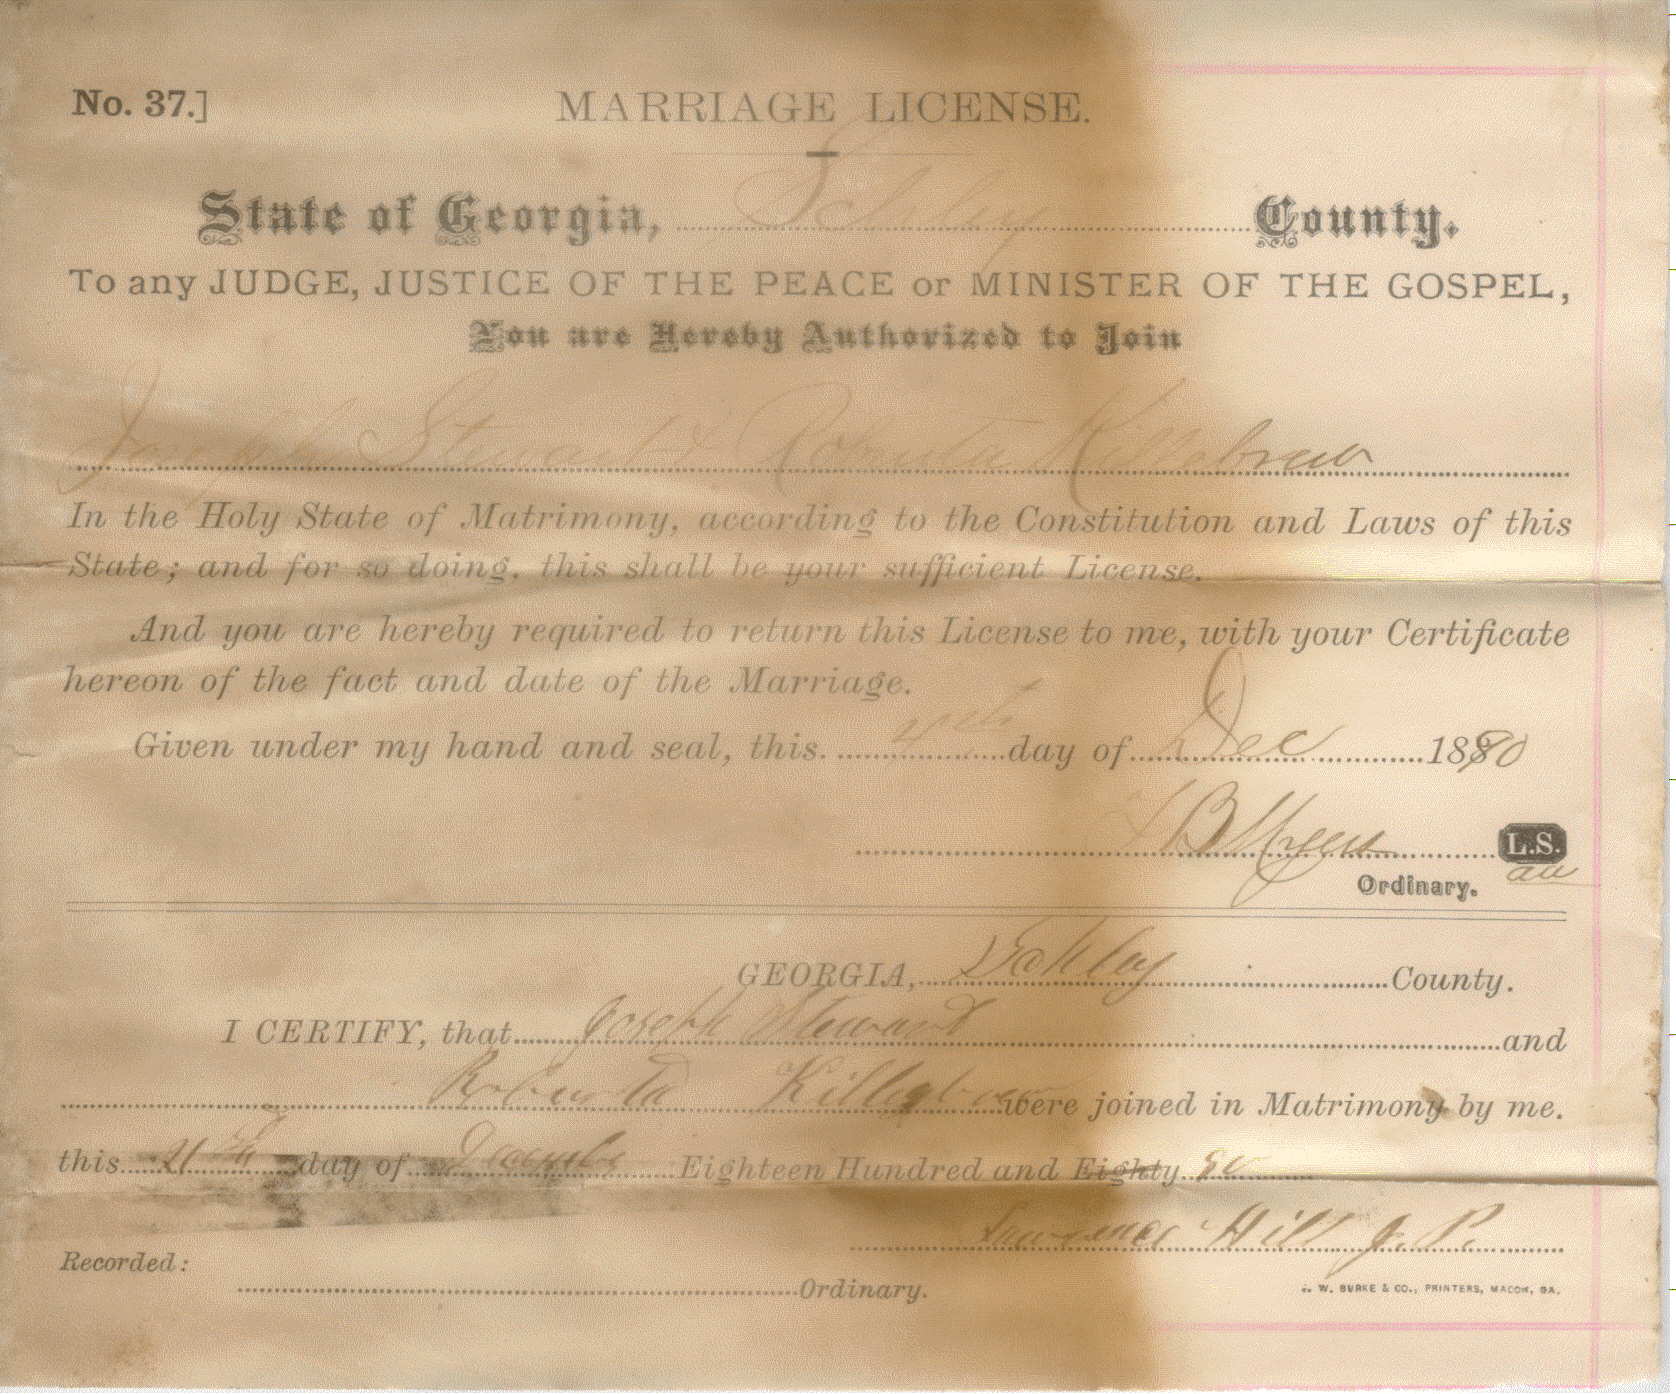 No. 37.]
MARRIAGE LICENSE.
State of Georgia, Schley County.
To any JUDGE, JUSTICE OF THE PEACE or MINISTER OF THE GOSPEL,
You are Hereby Authorized to Join
Joseph Stewart & Roberta Killebrew
In the Holy State of Matrimony, according to the Constitution and Laws of this
State; and for so doing, this shall be your sufficient License.
And you are hereby required to return this License to me, with your Certificate
hereon of the fact and date of the Marriage.
Given under my hand and seal, this 4th day of Dec 1890
L.S.
Ordinary.
GEORGIA, Schley County.
I CERTIFY, that Joseph Steward and
Roberta were joined in Matrimony by me.
this day of Eighteen Hundred and Eighty 90
Lawrence Hill J. P.
Recorded:
Ordinary.
W. BURKE & CO., PRINTERS, MACON, GA.